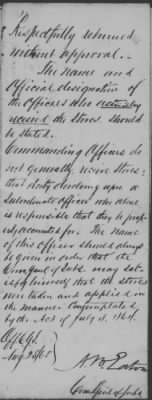 Respectfully returned
without approval. -
The name and
Official designation of
the Officers who actually
received the Stores, should
be stated.
Commanding Officers do
not generally receive Stores:
that duty devolving upon a
Subordinate officer who alone
is responsible that they be prop-
erly accounted for. The name
of this Officer should always
be given in order that the
Com'y Genl of Subs. may sat-
isfy himself that the stores
were taken and applied in
the manner contemplated
by the Act of July 4, 1864.
Aug 25/65
A. B. Eaton
Com'y Genl of Subs